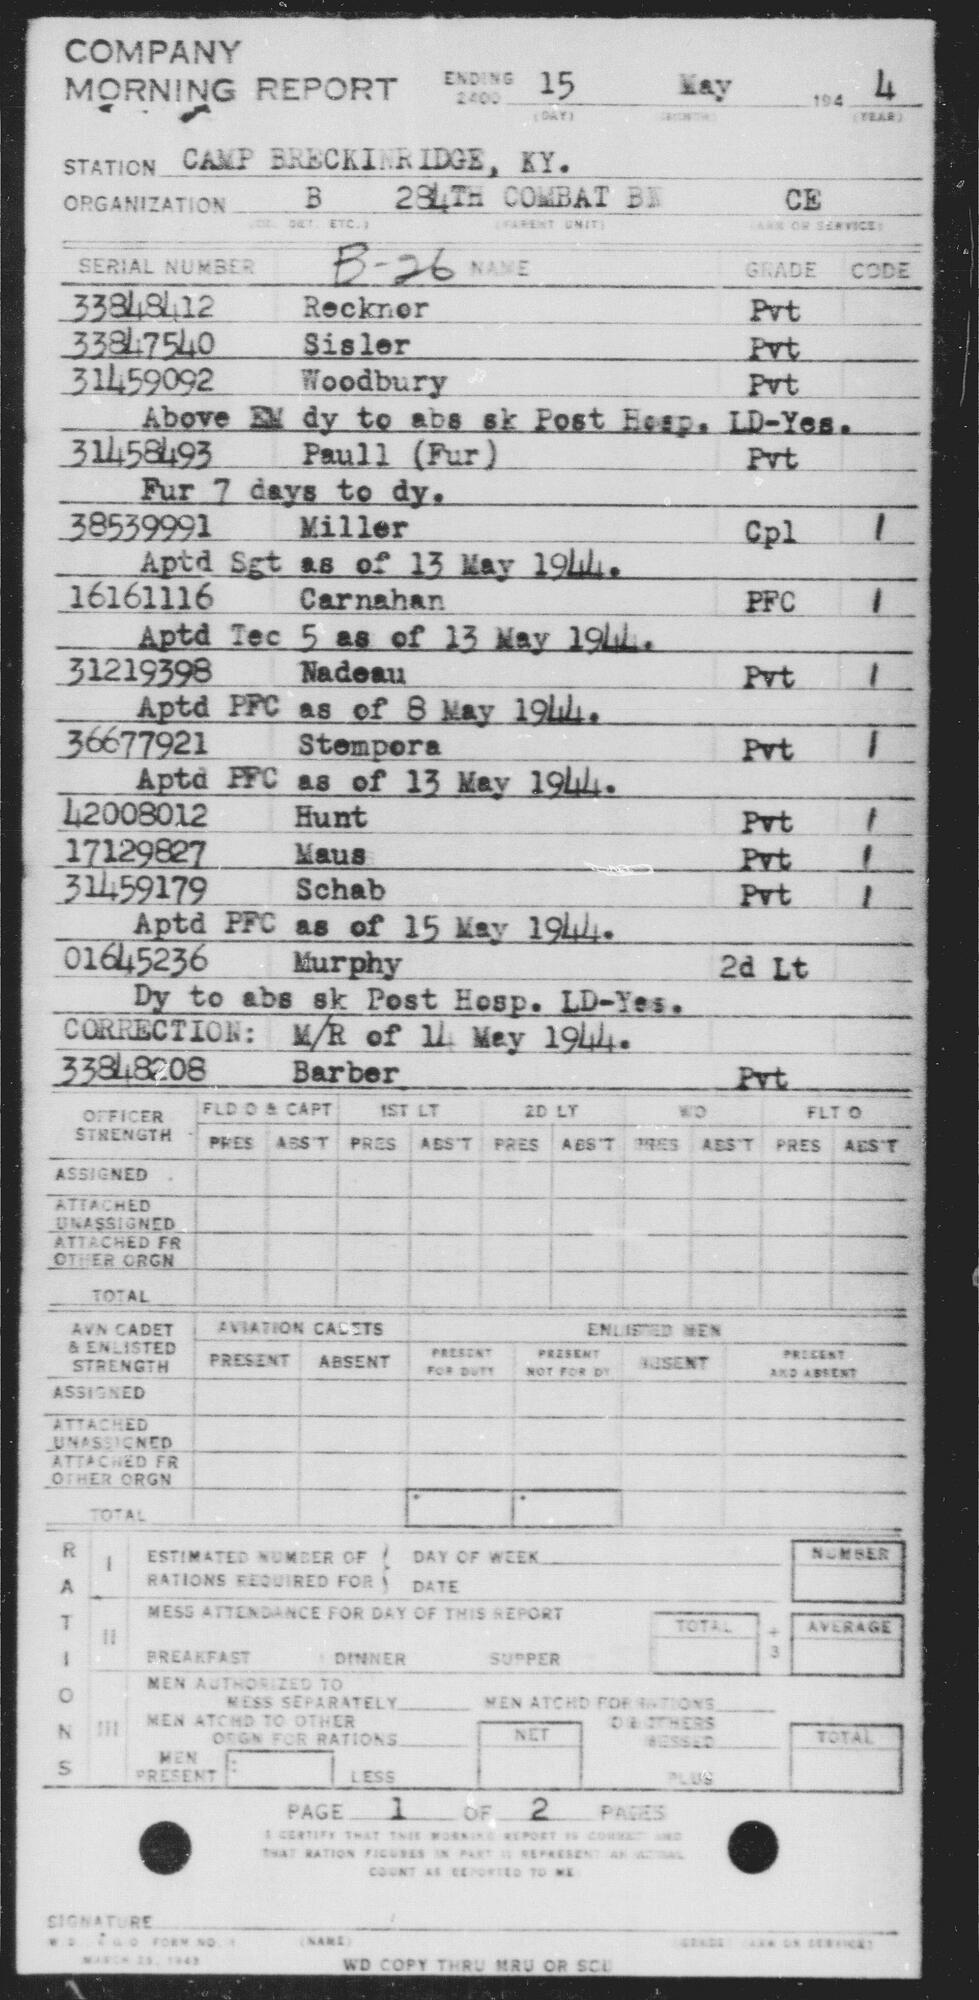 COMPANY
MORNING REPORT ENDING 2400 15 May 194 4
(DAY) (MONTH) (YEAR)
STATION CAMP BRECKINRIDGE, KY.
ORGANIZATION B 284TH COMBAT BN CE
(CO. DET. ETC.) (PARENT UNIT) (ARM OR SERVICE)
SERIAL NUMBER B-26 NAME GRADE CODE
33848412 Recknor Pvt
33847540 Sisler Pvt
31459092 Woodbury Pvt
Above EM dy to abs sk Post Hosp. LD-Yes.
31458493 Paull (Fur) Pvt
Fur 7 days to dy.
38539991 Miller Cpl 1
Aptd Sgt as of 13 May 1944.
16161116 Carnahan PFC 1
Aptd Tec 5 as of 13 May 1944.
31219398 Nadeau Pvt 1
Aptd PFC as of 8 May 1944.
36677921 Stempora Pvt 1
Aptd PFC as of 13 May 1944.
42008012 Hunt Pvt 1
17129827 Maus Pvt 1
31459179 Schab Pvt 1
Aptd PFC as of 15 May 1944.
01645236 Murphy 2d Lt
Dy to abs sk Post Hosp. LD-Yes.
CORRECTION: M/R of 14 May 1944.
33848208 Barber Pvt
OFFICER STRENGTH FLD O & CAPT 1ST LT 2D LT WO FLT O
PRES ABS'T PRES ABS'T PRES ABS'T PRES ABS'T PRES ABS'T
ASSIGNED
ATTACHED
UNASSIGNED
ATTACHED FR
OTHER ORGN
TOTAL
AVN CADET & ENLISTED STRENGTH AVIATION CADETS ENLISTED MEN
PRESENT ABSENT PRESENT FOR DUTY PRESENT NOT FOR DY ABSENT PRESENT AND ABSENT
ASSIGNED
ATTACHED
UNASSIGNED
ATTACHED FR
OTHER ORGN
TOTAL
RATIONS
I ESTIMATED NUMBER OF RATIONS REQUIRED FOR DAY OF WEEK DATE NUMBER
II MESS ATTENDANCE FOR DAY OF THIS REPORT TOTAL ÷ 3 AVERAGE
BREAKFAST DINNER SUPPER
III MEN AUTHORIZED TO
MESS SEPARATELY MEN ATCHD FOR RATIONS
MEN ATCHD TO OTHER
ORGN FOR RATIONS NET OR OTHERS MESSED TOTAL
MEN PRESENT LESS PLUS
PAGE 1 OF 2 PAGES
I CERTIFY THAT THIS MORNING REPORT IS CORRECT AND
THAT RATION FIGURES IN PART II REPRESENT AN ACTUAL
COUNT AS REPORTED TO ME
SIGNATURE
W.D., A.G.O. FORM NO. 1 (NAME) (GRADE) (ARM OR SERVICE)
MARCH 25, 1943
WD COPY THRU MRU OR SCU